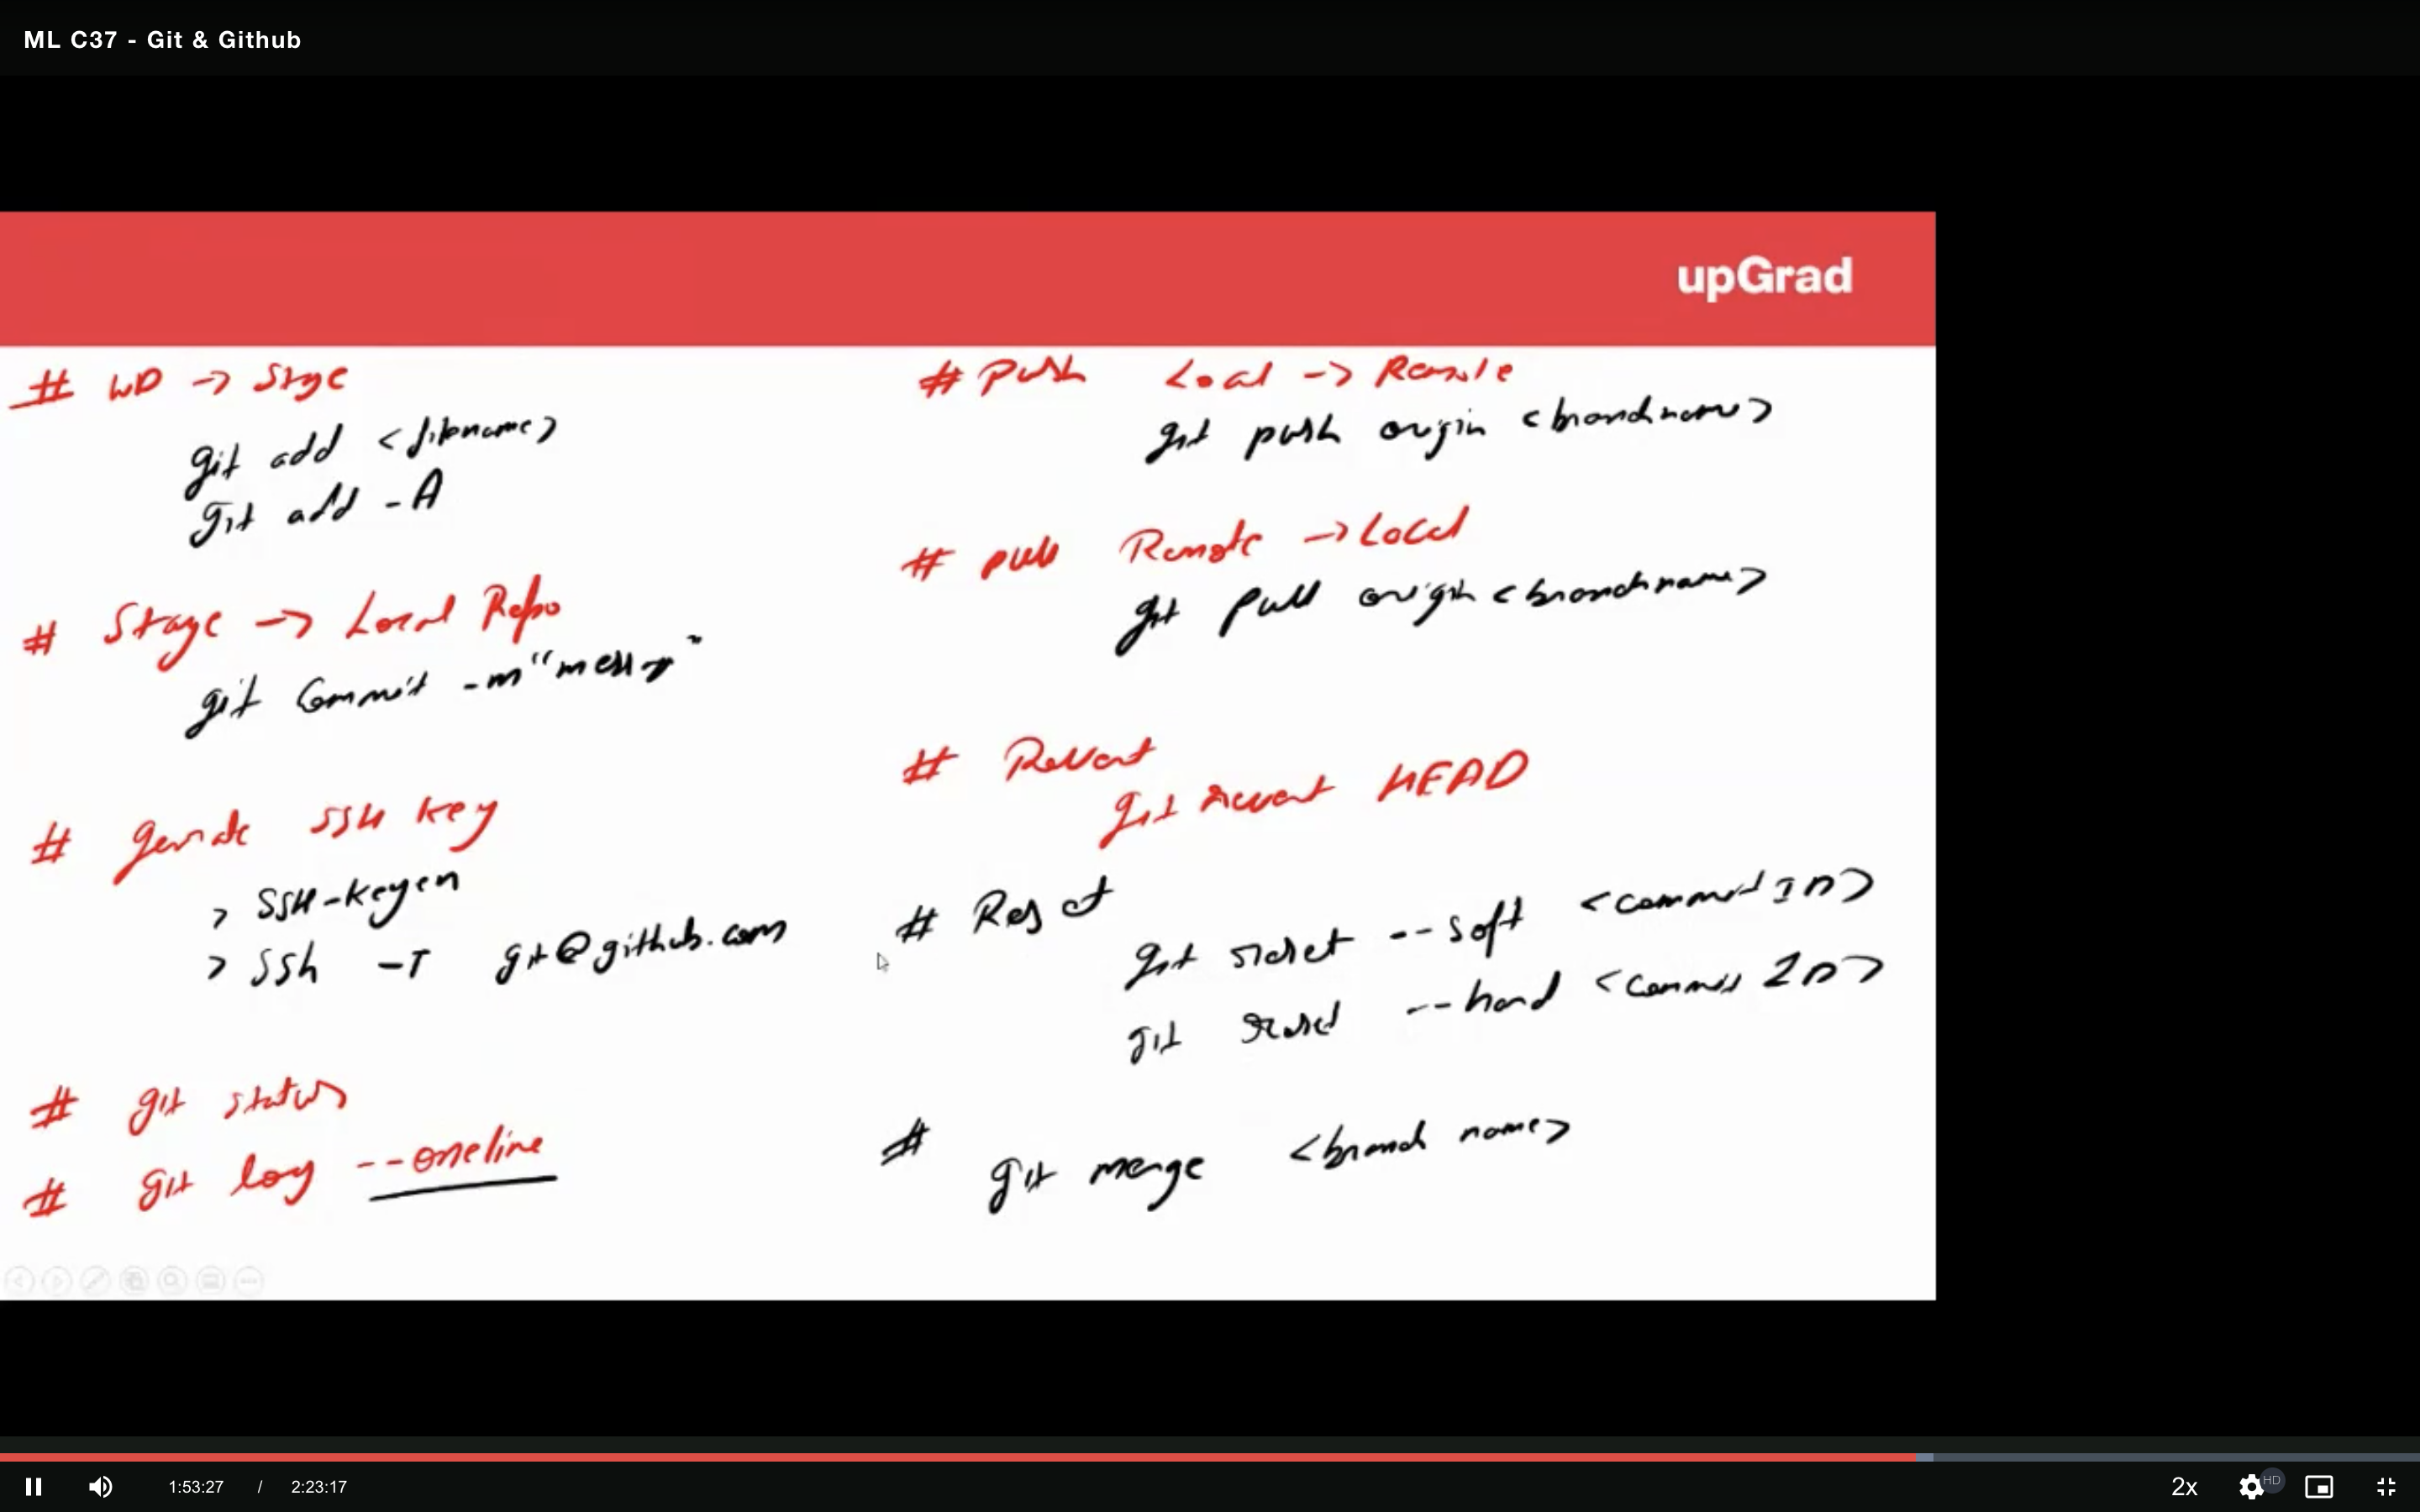 ML C37 - Git & Github
upGrad
# WD -> Stage
git add <filename>
git add -A
# Stage -> Local Repo
git commit -m "message"
# generate SSH key
> SSH-keygen
> ssh -T git@github.com
# git status
# git log --oneline
# Push Local -> Remote
git push origin <branchname>
# pull Remote -> Local
git pull origin <branchname>
# Revert
git revert HEAD
# Reset
git reset --soft <commit ID>
git reset --hard <commit ID>
# git merge <branch name>
1:53:27 / 2:23:17
2x
HD